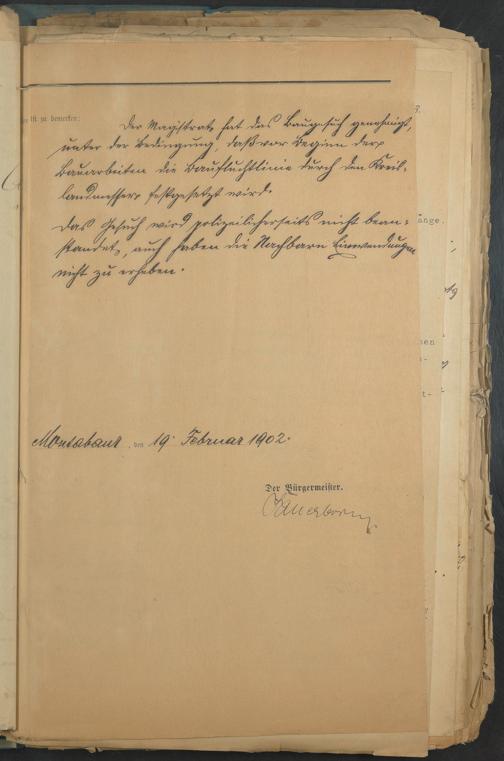 ist zu bemerken:
Der Magistrat hat das Baugesuch genehmigt,
unter der Bedingung, daß vor Beginn der
Bauarbeiten die Baufluchtlinie durch den Kreis-
landmesser festgesetzt wird.
Das Gesuch wird polizeilicherseits nicht bean-
standet, auch haben die Nachbarn Einwendungen
nicht zu erheben.
Montabaur, den 19. Februar 1902.
Der Bürgermeister.
Sauerborn